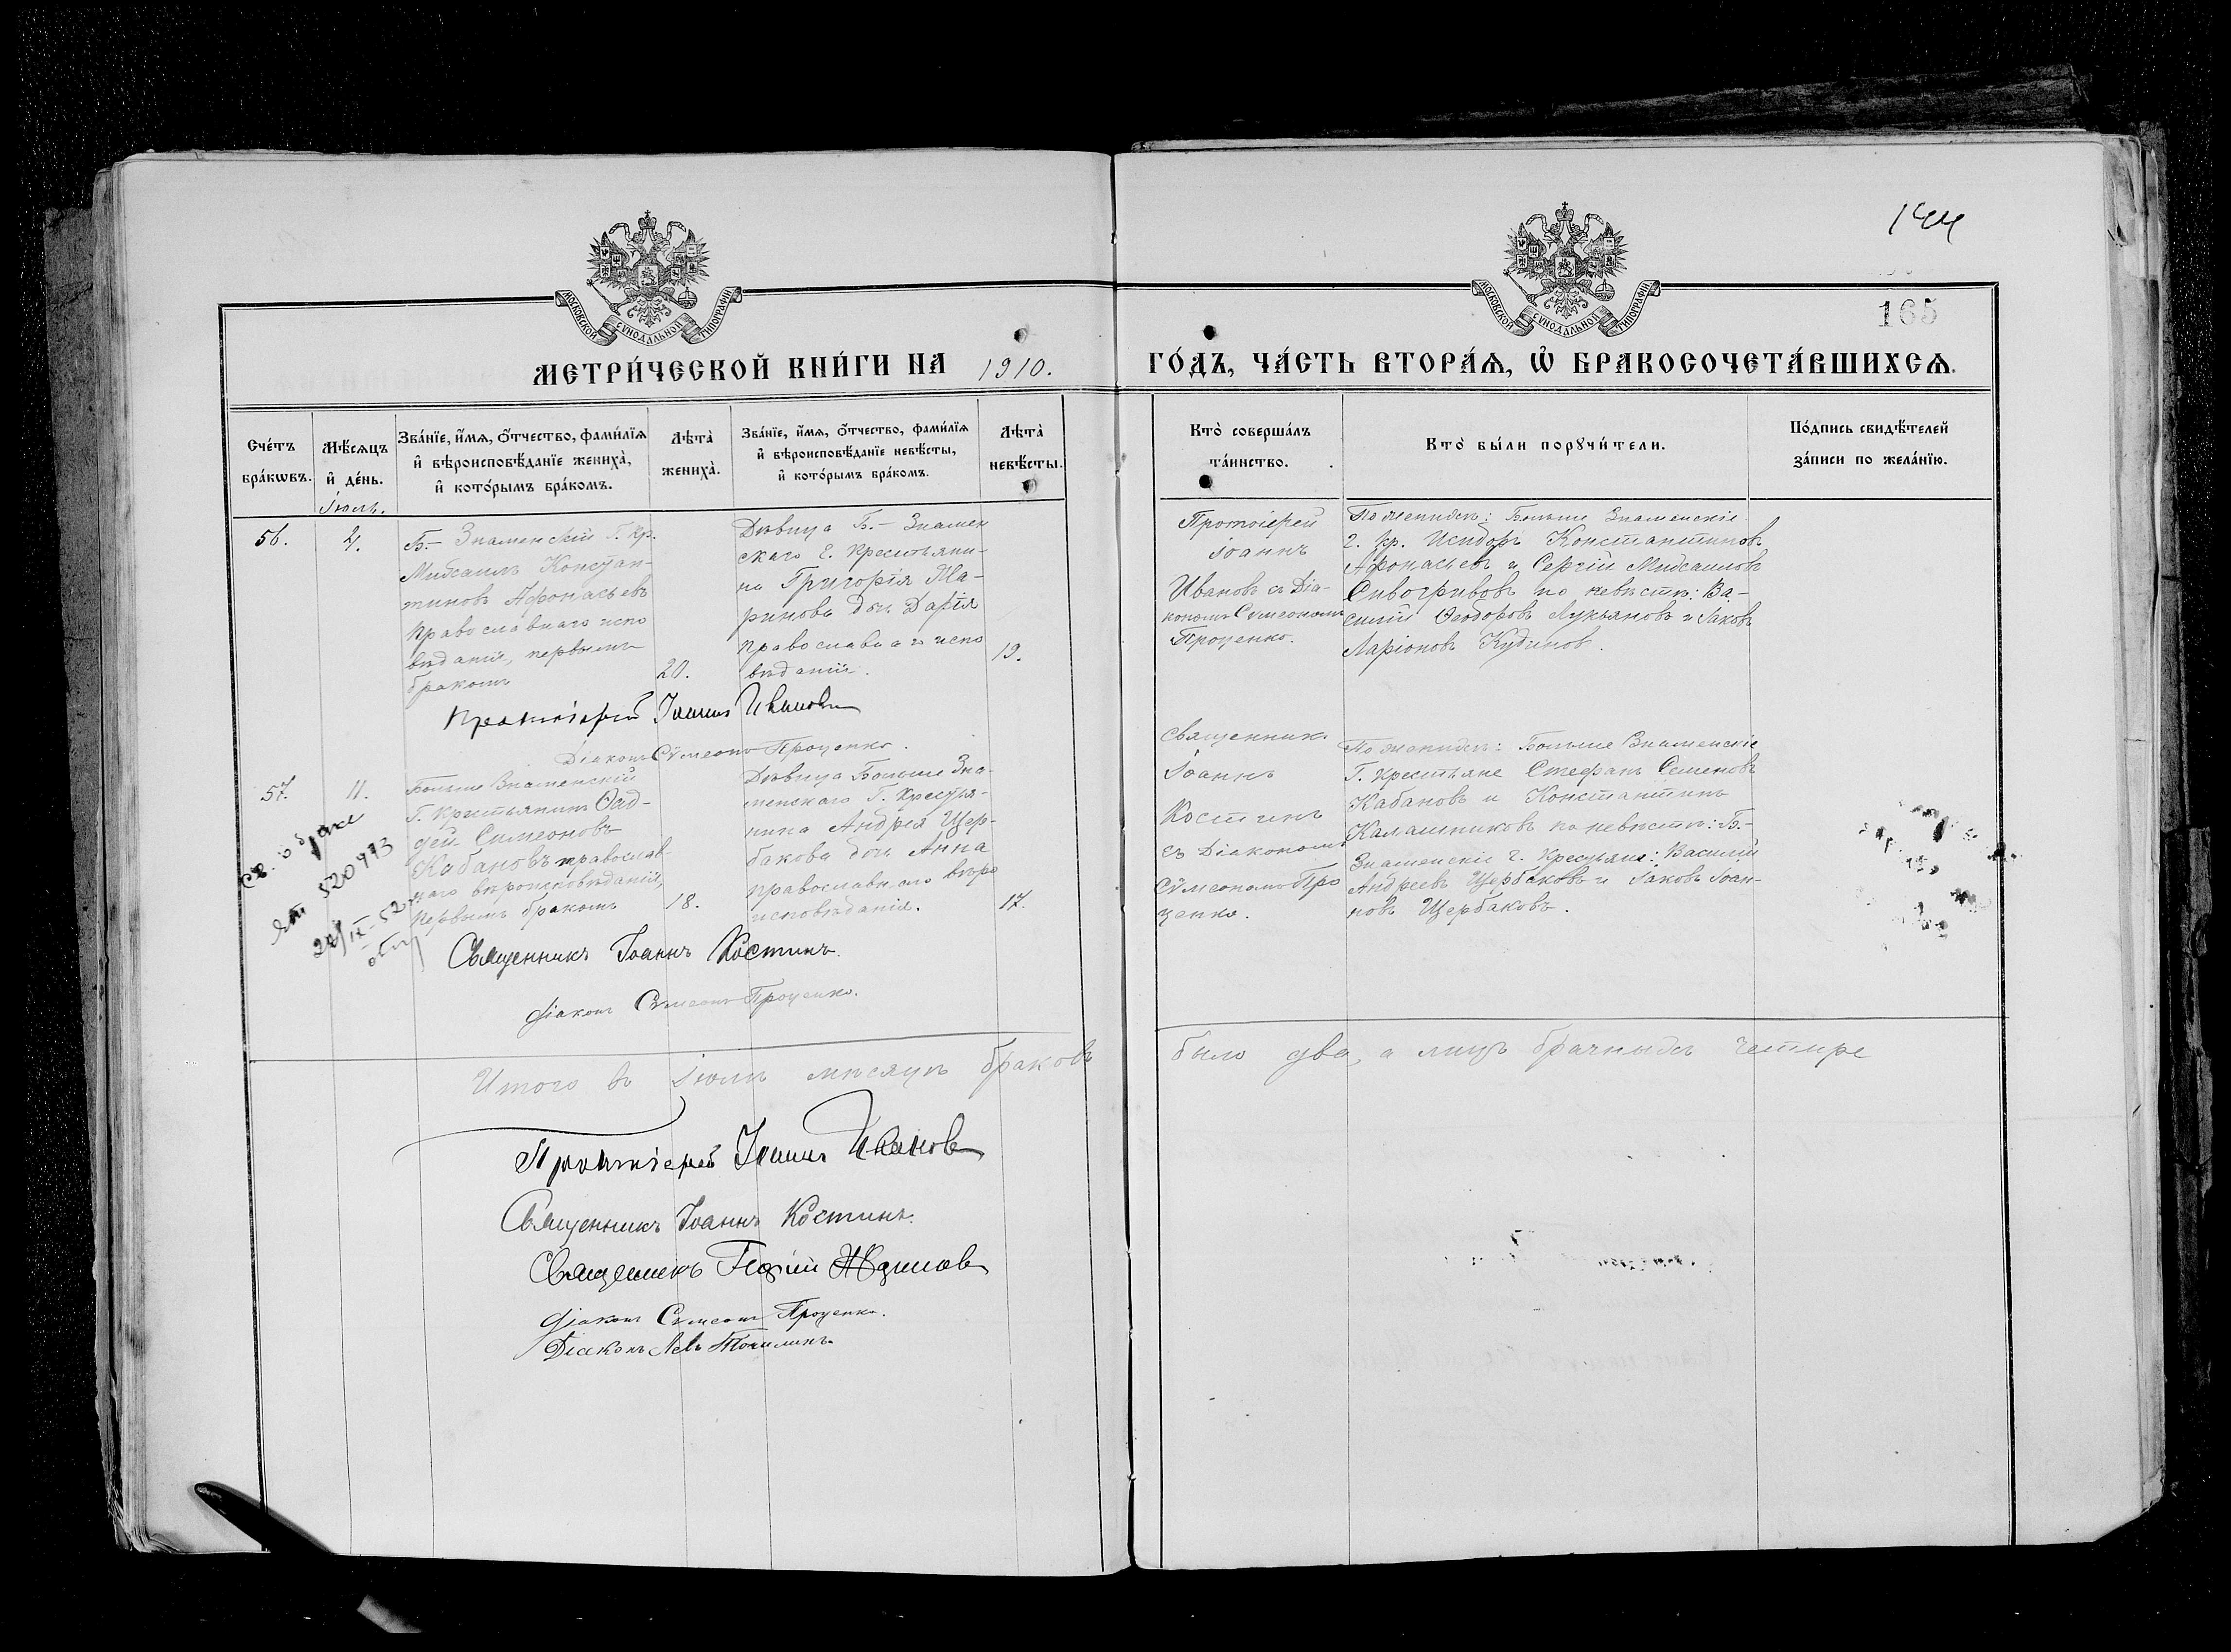 144
165
МОСКОВСКОЙ СѴНОДАЛЬНОЙ ТИПОГРАФІИ
МОСКОВСКОЙ СѴНОДАЛЬНОЙ ТИПОГРАФІИ
МЕТРИ́ЧЕСКОЙ КНИ́ГИ НА 1910. ГО́ДЪ, ЧА́СТЬ ВТОРА́Ѧ, Ѡ҆ БРАКОСОЧЕТА́ВШИХСѦ.
Сче́тъ бра́кѡвъ.
Мѣ́сѧцъ и҆ де́нь.
Зва́нїе, и҆́мѧ, ѻ҆́тчество, фами́лїѧ и҆ вѣроисповѣ́данїе жениха̀, и҆ кото́рымъ бра́комъ.
Лѣта̀ жениха̀.
Зва́нїе, и҆́мѧ, ѻ҆́тчество, фами́лїѧ и҆ вѣроисповѣ́данїе невѣ́сты, и҆ кото́рымъ бра́комъ.
Лѣта̀ невѣ́сты.
Кто̀ соверша́лъ та́инство.
Кто̀ бы́ли порꙋчи́тели.
По́дпись свидѣ́телей за́писи по жела́нїю.
Іюль.
56.
4.
Б.- Знаменскій Г. кр.
Михаилъ Констан-
тиновъ Афонасьевъ
православнаго испо
вѣданія, первымъ
бракомъ
20.
Дѣвица Б.- Знамен
скаго с. крестьяни-
на Григорія Ма-
ринова дочь Дарія
православнаго испо
вѣданія.
19.
Протоіерей
Іоаннъ
Ивановъ съ Діа-
кономъ Сѵмеономъ
Проценко.
По женихѣ: Больше Знаменскіе
г. кр. Исидоръ Константиновъ
Афонасьевъ и Сергій Михаиловъ
Сивогривовъ по невѣстѣ: Ва-
силій Ѳеодоровъ Лукьяновъ и Іаковъ
Ларіоновъ Кудиновъ.
Протоіерей Іоаннъ Ивановъ
Діаконъ Сѵмеонъ Проценко.
57.
11.
Больше Знаменскій
Г. крестьянинъ Ѳад-
дей Симеоновъ
Кабановъ православ
наго вѣроисповѣданія,
первымъ бракомъ
18.
Дѣвица Больше Зна-
менскаго Г. крестья-
нина Андрея Щер-
бакова дочь Анна
православнаго вѣро
исповѣданія.
17.
Священникъ
Іоаннъ
Костинъ
съ Діакономъ
Сѵмеономъ Про
ценко.
По женихѣ: Больше Знаменскіе
Г. крестьяне Стефанъ Семеновъ
Кабановъ и Константинъ
Калашниковъ по невѣстѣ: Б.-
Знаменскіе г. крестьяне: Василій
Андреевъ Щербаковъ и Іаковъ Іоан-
новъ Щербаковъ.
св. о браке
520473
Священникъ Іоаннъ Костинъ.
Діаконъ Сѵмеонъ Проценко.
Итого въ Іюлѣ мѣсяцѣ браковъ было два, а лицъ брачныхъ четыре
Протоіерей Іоаннъ Ивановъ
Священникъ Іоаннъ Костинъ.
Священникъ
Діаконъ Сѵмеонъ Проценко.
Діаконъ Левъ Точилинъ